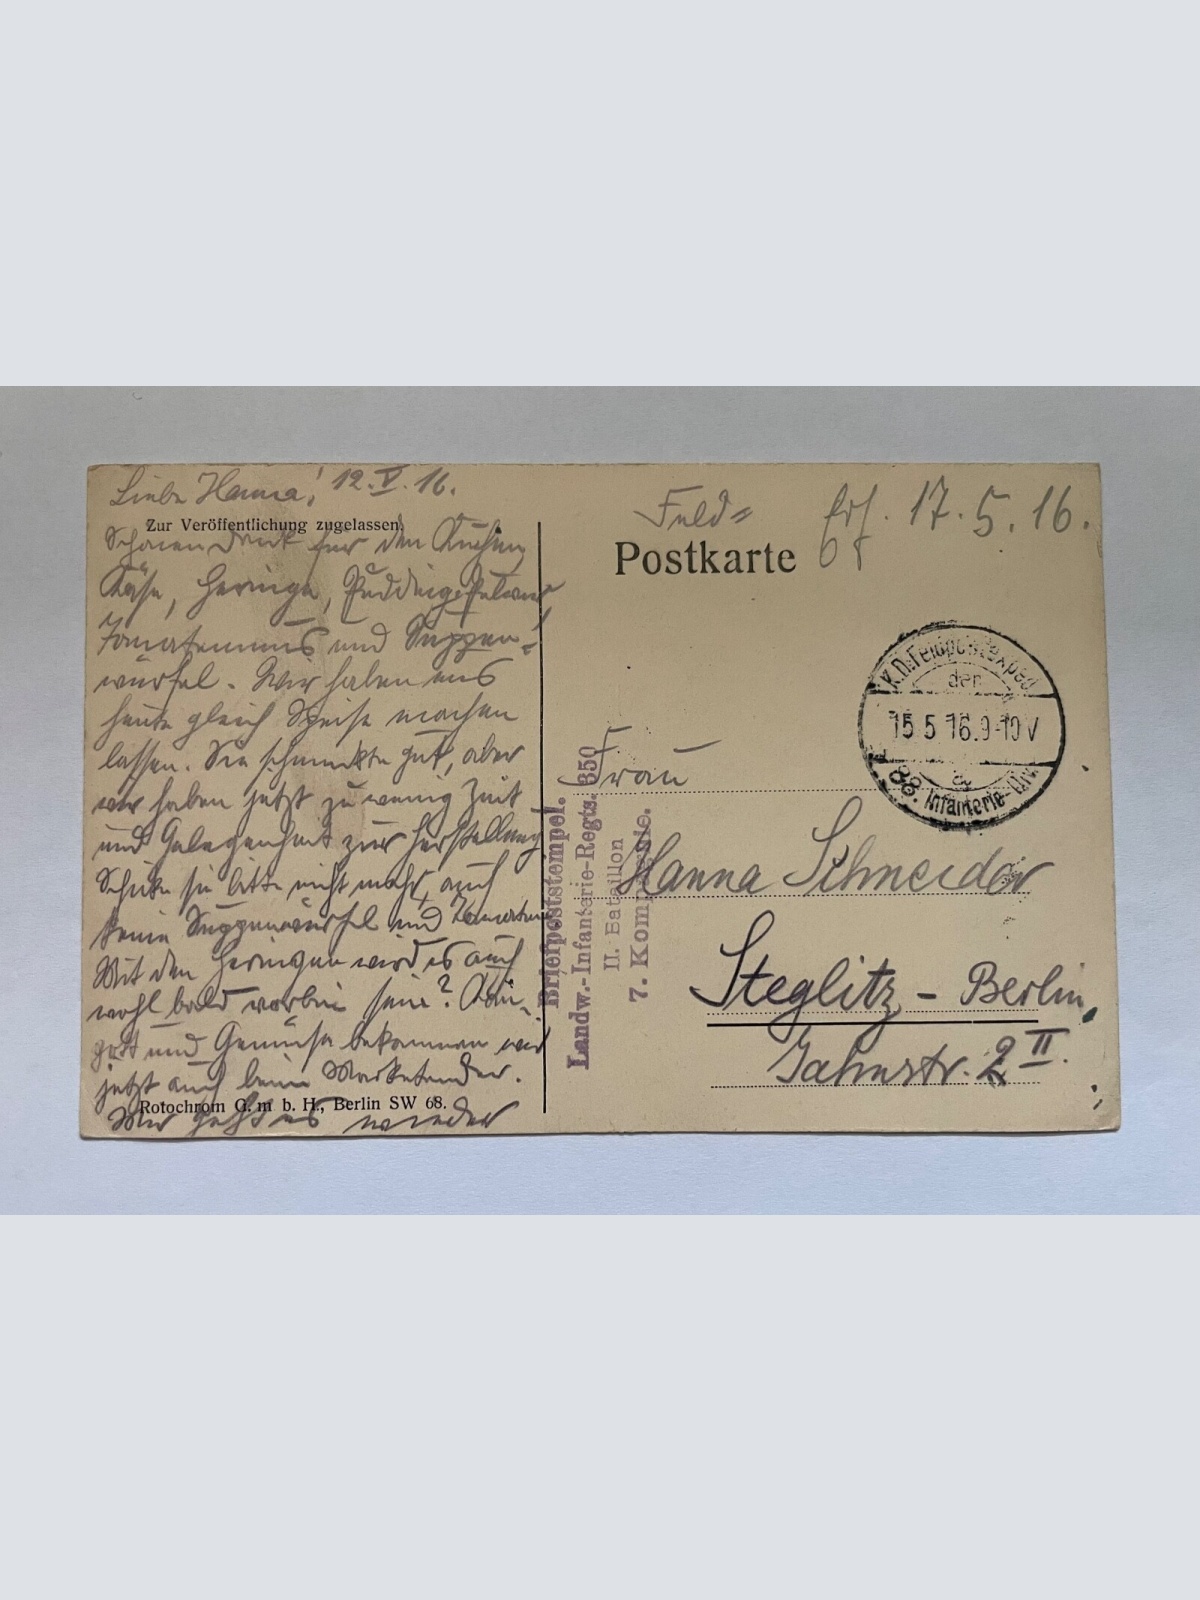 Liebe Hanna! 12.V.16.
Zur Veröffentlichung zugelassen.
Schönen Dank für den Kuchen,
Käse, Heringe, Puddingpulver,
Tomatenmus und Suppen-
würfel. Wir haben uns
heute gleich Speise machen
lassen. Sie schmeckte gut, aber
wir haben jetzt zu wenig Zeit
und Gelegenheit zur Herstellung
Schicke sie bitte nicht mehr, auch
keine Suppenwürfel und Tomaten
Mit den Heringen wird es auch
wohl bald vorbei sein?
und Gemüse bekommen wir
jetzt auch beim Marketender.
Rotochrom G. m b. H., Berlin SW 68.
Mir geht es wieder
Feld=
Postkarte
Erh. 17.5.16.
K.D. Feldpostexped.
der
15 5 16.9-10V
a
88. Infanterie-Div.
Briefpoststempel.
Landw.-Infanterie-Regts. 350
II. Bataillon
7. Kompagnie.
Frau
Hanna Schneider
Steglitz-Berlin,
Jahnstr. 2 II.